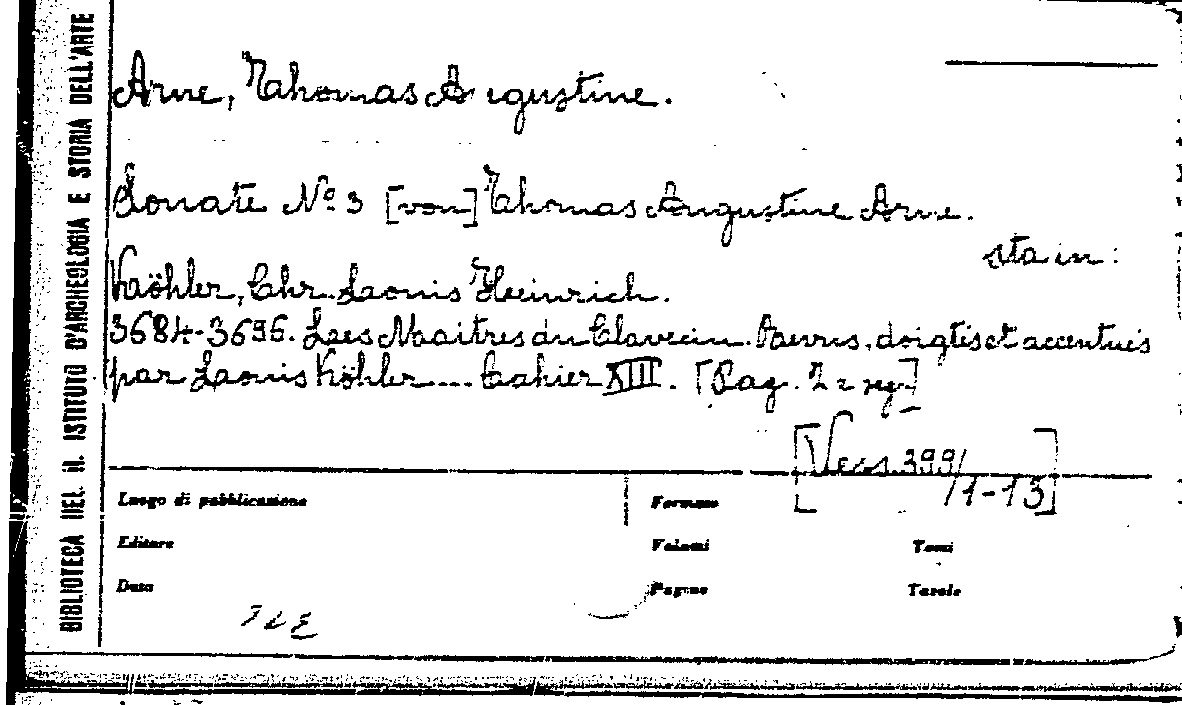 BIBLIOTECA DEL R. ISTITUTO D'ARCHEOLOGIA E STORIA DELL'ARTE
Arne, Thomas Augustine.
Sonate Nº 3 [von] Thomas Augustine Arne.
sta in:
Köhler, Chr. Louis Heinrich.
3684-3696. Les Maitres du Clavecin. Revus, doigtés et accentués
par Louis Köhler.... Cahier XIII. [Pag. 2 e seg.]
[Vess. 399/
/1-13]
Luogo di pubblicazione
Formato
Editore
Volumi
Tomi
Data
Pagine
Tavole